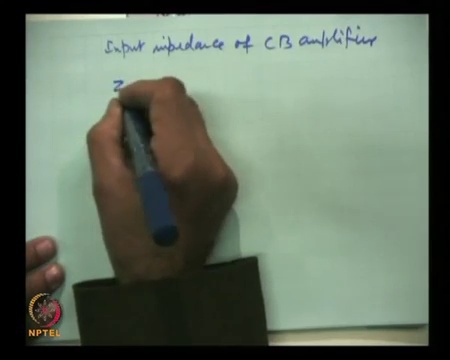 Input impedance of CB amplifier
Z
NPTEL